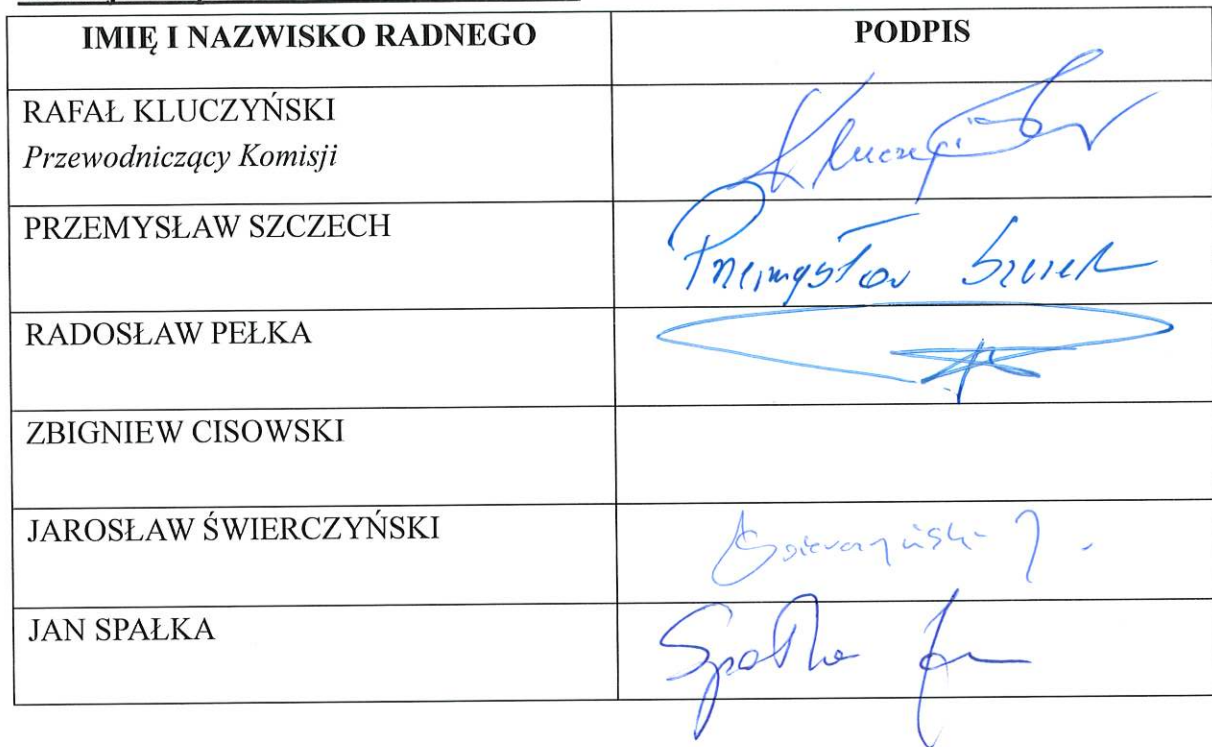 IMIĘ I NAZWISKO RADNEGO PODPIS
RAFAŁ KLUCZYŃSKI
Przewodniczący Komisji
PRZEMYSŁAW SZCZECH
Przemysław Szczech
RADOSŁAW PEŁKA
ZBIGNIEW CISOWSKI
JAROSŁAW ŚWIERCZYŃSKI
Świerczyński J.
JAN SPAŁKA
Spałka Jan